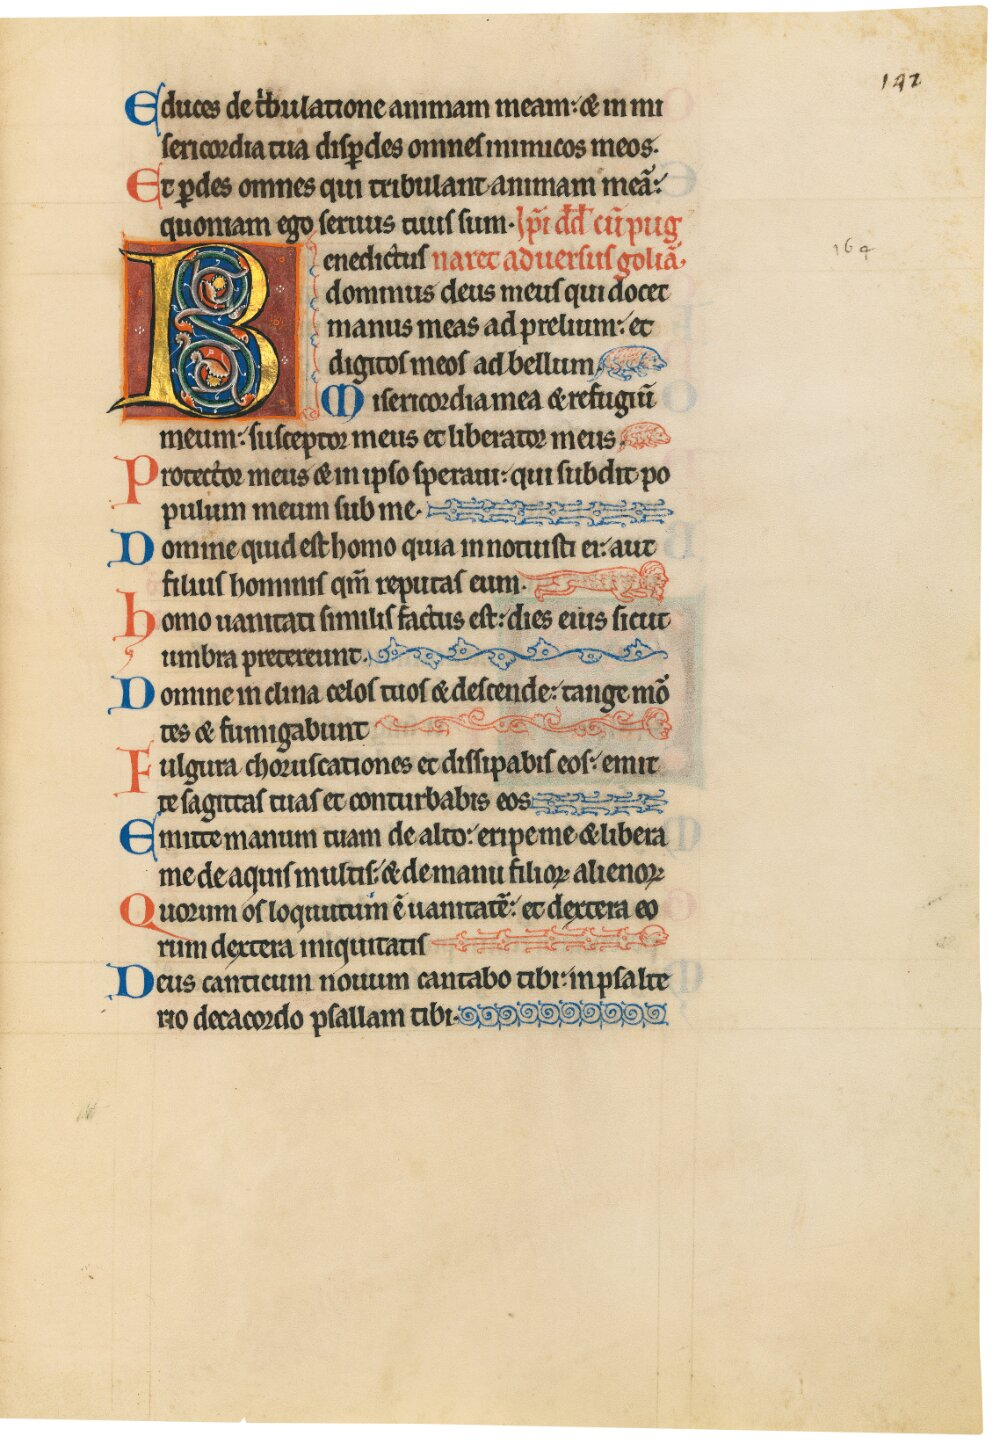 142
Educes de tribulatione animam meam: & in mi
sericordia tua disꝑdes omnes inimicos meos.
Et ꝑdes omnes qui tribulant animam meā:
quoniam ego seruus tuus sum. ip̄i dd̄ cū pug
164
Benedictus naret aduersus goliā.
dominus deus meus qui docet
manus meas ad prelium: et
digitos meos ad bellum
Misericordia mea & refugiū
meum: susceptor meus et liberator meus
Protector meus & in ipso speraui: qui subdit po
pulum meum sub me.
Domine quid est homo quia innotuisti ei: aut
filius hominis qm̄ reputas eum.
homo uanitati similis factus est: dies eius sicut
umbra pretereunt.
Domine inclina celos tuos & descende: tange mō
tes & fumigabunt
Fulgura choruscationes et dissipabis eos: emit
te sagittas tuas et conturbabis eos
Emitte manum tuam de alto: eripe me & libera
me de aquis multis: & de manu filioꝝ alienoꝝ
Quorum os loquutum ē uanitatē: et dextera eo
rum dextera iniquitatis
Deus canticum nouum cantabo tibi: in psalte
rio decacordo psallam tibi.